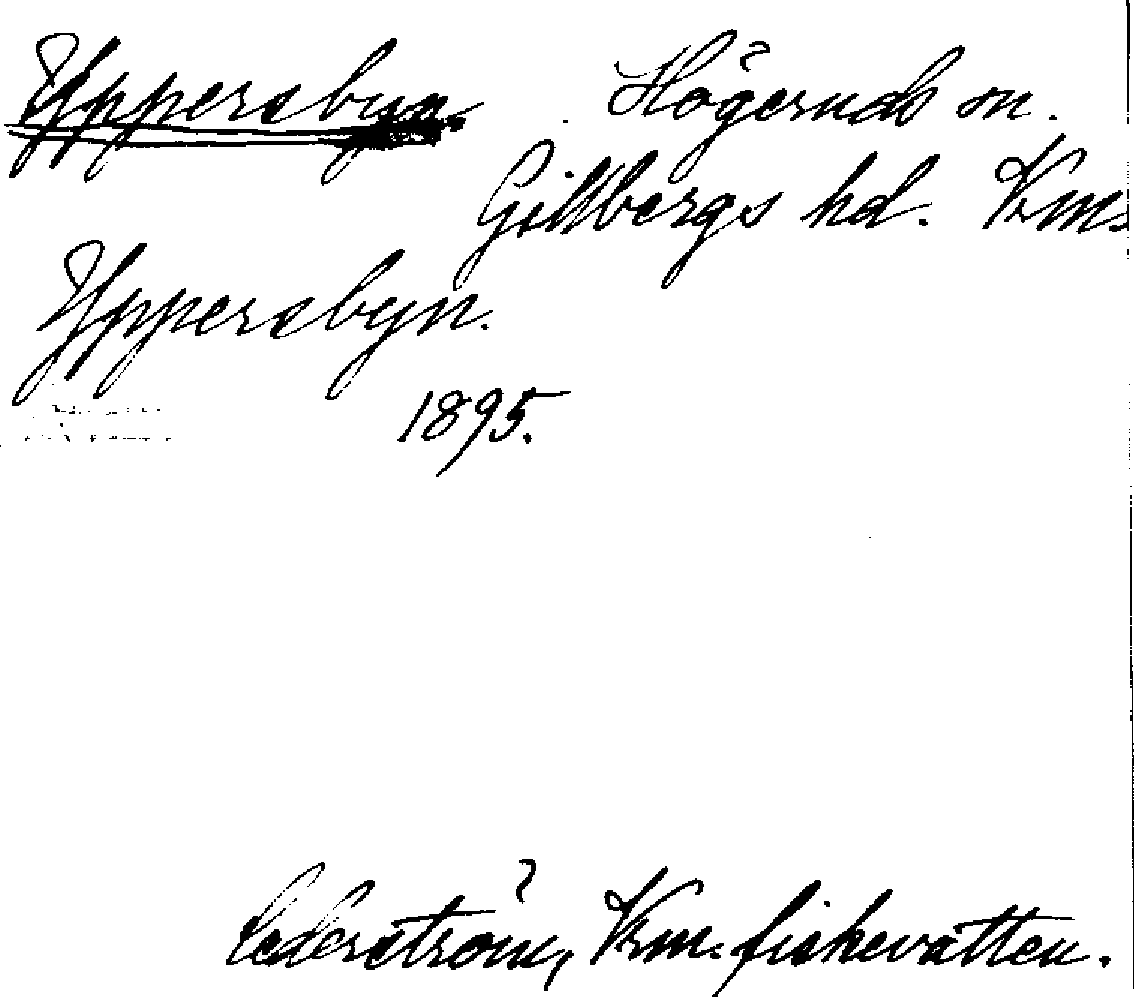 Yppersbyn. Högeruds sn.
Gillbergs hd. Vrml.
Yppersbyn.
1895.
Cederström, Vrm. fiskevatten.